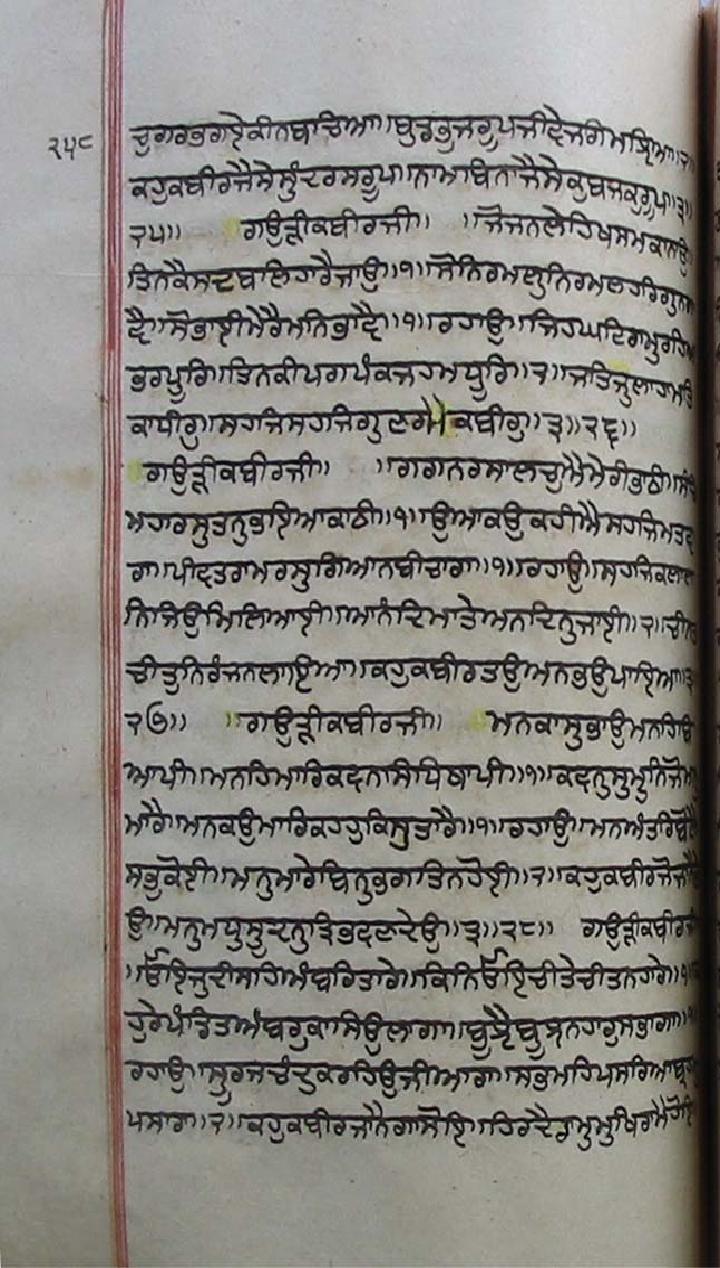 ੨੫੮
ਚੁਗਰਭਗਏਕੀਨਬਾਚਿਆ॥ਬੁਡਭੁਜਰੂਪਜੀਵੇਜਗਿਮਝਿਆ॥੨॥
ਕਹੁਕਬੀਰਜੈਸੇਸੁੰਦਰਸਰੂਪ॥ਨਾਮਬਿਨਾਜੈਸੇਕੁਬਜਕੁਰੂਪ॥੩॥
੨੫॥ ਗਉੜੀਕਬੀਰਜੀ॥ ॥ਜੋਜਨਲੇਹਿਖਸਮਕਾਨਾਉ
ਤਿਨਕੈਸਦਬਲਿਹਾਰੈਜਾਉ॥੧॥ਸੋਨਿਰਮਲੁਨਿਰਮਲਹਰਿਗੁਨਗਾ
ਵੈ॥ਸੋਭਾਈਮੇਰੈਮਨਿਭਾਵੈ॥੧॥ਰਹਾਉ॥ਜਿਹਘਟਿਰਾਮੁਰਹਿਆ
ਭਰਪੂਰਿ॥ਤਿਨਕੀਪਗਪੰਕਜਹਮਧੂਰਿ॥੨॥ਜਾਤਿਜੁਲਾਹਾਮਤਿ
ਕਾਧੀਰੁ॥ਸਹਜਿਸਹਜਿਗੁਣਰਮੈਕਬੀਰੁ॥੩॥੨੬॥
ਗਉੜੀਕਬੀਰਜੀ॥ ॥ਗਗਨਰਸਾਲਚੁਐਮੇਰੀਭਾਠੀ॥ਸੰਚਿ
ਮਹਾਰਸੁਤਨੁਭਇਆਕਾਠੀ॥੧॥ਉਆਕਉਕਹੀਐਸਹਜਿਮਤਵਾ
ਰਾ॥ਪੀਵਤਰਾਮਰਸੁਗਿਆਨਬੀਚਾਰਾ॥੧॥ਰਹਾਉ॥ਸਹਜਿਕਲਾਲ
ਨਿਜਿਉਮਿਲਿਆਈ॥ਆਨੰਦਿਮਾਤੇਅਨਦਿਨੁਜਾਈ॥੨॥ਚੀਨਤ
ਚੀਤੁਨਿਰੰਜਨਲਾਇਆ॥ਕਹੁਕਬੀਰਤਉਅਨਭਉਪਾਇਆ॥੩
੨੭॥ ॥ਗਉੜੀਕਬੀਰਜੀ॥ ਮਨਕਾਸੁਭਾਉਮਨਹਿਬਿ
ਆਪੀ॥ਮਨਹਿਮਾਰਿਕਵਨਸਿਧਿਥਾਪੀ॥੧॥ਕਵਨੁਸੁਮੁਨਿਜੋਮਨ
ਮਾਰੈ॥ਮਨਕਉਮਾਰਿਕਹਹੁਕਿਸੁਤਾਰੈ॥੧॥ਰਹਾਉ॥ਮਨਅੰਤਰਿਬੋਲੈ
ਸਭੁਕੋਈ॥ਮਨੁਮਾਰੇਬਿਨੁਭਗਤਿਨਹੋਈ॥੨॥ਕਹੁਕਬੀਰਜੋਜਾਨੈ
ਉ॥ਮਨੁਮਧੁਸੂਦਨੁਤ੍ਰਿਭਵਣਦੇਉ॥੩॥੨੮॥ ਗਉੜੀਕਬੀਰਜੀ
॥ਓਇਜੁਦੀਸਹਿਅੰਬਰਿਤਾਰੇ॥ਕਿਨਿਓਇਚੀਤੇਚੀਤਨਹਾਰੇ॥੧॥
ਕਹੁਰੇਪੰਡਿਤਅੰਬਰੁਕਾਸਿਉਲਾਗਾ॥ਬੂਝੈਬੂਝਨਹਾਰੁਸਭਾਗਾ॥੧॥
ਰਹਾਉ॥ਸੂਰਜਚੰਦੁਕਰਹਿਉਜੀਆਰਾ॥ਸਭਮਹਿਪਸਰਿਆਬ੍ਰਹਮ
ਪਸਾਰਾ॥੨॥ਕਹੁਕਬੀਰਜਾਨੈਗਾਸੋਇ॥ਹਿਰਦੈਰਾਮੁਮੁਖਿਰਾਮੈਹੋਇ